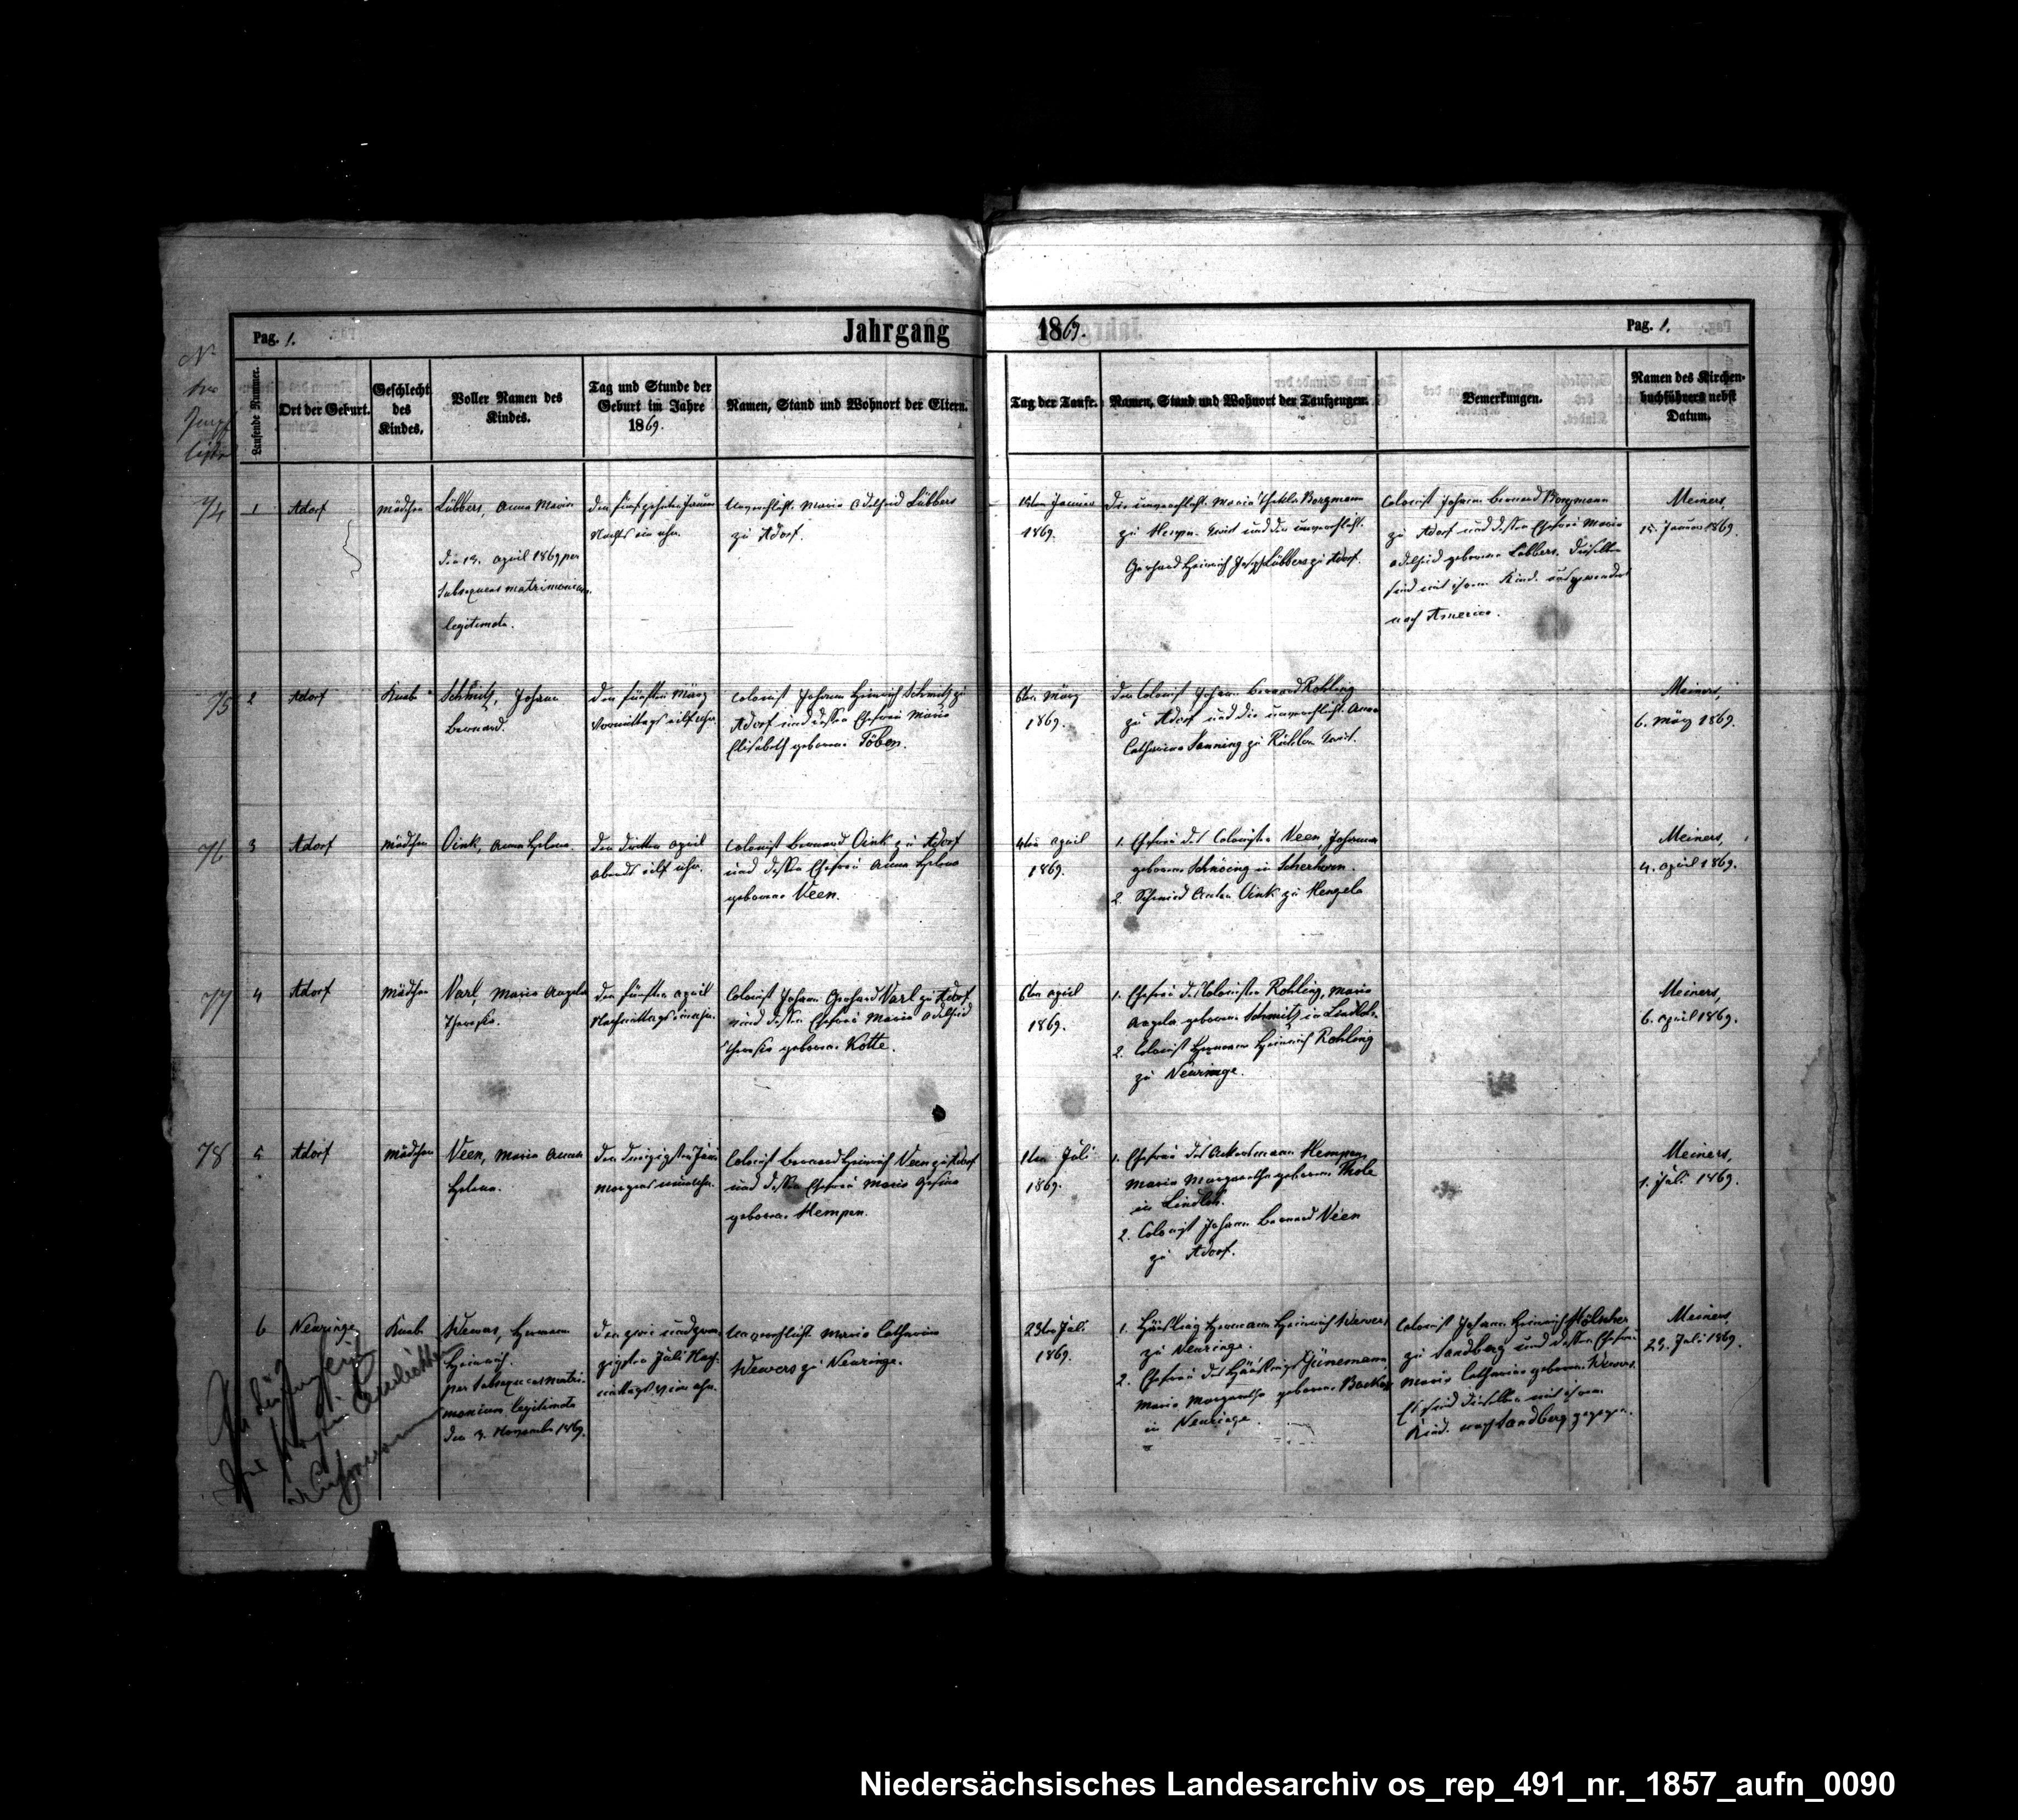 Pag. 1.
Jahrgang
1869.
Pag. 1.
Laufende Numer.
Ort der Geburt.
Geschlecht
des
Kindes.
Voller Namen des
Kindes.
Tag und Stunde der
Geburt im Jahre
1869.
Namen, Stand und Wohnort der Eltern.
Tag der Taufe.
Namen, Stand und Wohnort der Taufzeugen.
Bemerkungen.
Namen des Kirchen-
buchführers nebst
Datum.
74
1
Adorf
Mädchen
Lübbers, Anna Maria
den 13. April 1869 per
subsequens matrimonium
legitimata.
den fünfzehnten Januar
Nachts ein Uhr.
Unverehlicht. Maria Adelheid Lübbers
zu Adorf.
15ten Januar
1869.
Die unverehlicht. Maria Thekla Borgmann
zu und der unverehlicht.
Gerhard Heinrich Joseph Lübbers zu Adorf.
Colonist Johann Bernard Borgmann
zu Adorf und dessen Ehefrau Maria
Adelheid geborene Lübbers. Dieselben
sind mit ihrem Kinde ausgewandert
nach America.
Meiners,
15. Januar 1869
75
2
Adorf
Knabe
Schmitz, Johann
Bernard.
den fünften März
Vormittags eilf Uhr.
Colonist Johann Heinrich Schmitz zu
Adorf und dessen Ehefrau Maria
Elisabeth geborene Töben.
6ten März
1869.
Der Colonist Johann Bernard Rohling
zu Adorf und die unverehlicht. Anna
Catharina Sanning zu Rühler Twist.
Meiners,
6. März 1869.
76
3
Adorf
Mädchen
Oink, Anna Helena.
den dritten April
Abends eilf Uhr.
Colonist Bernard Oink zu Adorf
und dessen Ehefrau Anna Helena
geborene Veen.
4ten April
1869.
1. Ehefrau des Colonisten Veen, Johanna
geborene Schnöing in Scherhorn.
2. Schmied Anton Oink zu Hengelo
Meiners,
4. April 1869.
77
4
Adorf
Mädchen
Varl, Maria Angela
Theresia.
den fünften April
Nachmittags ein Uhr.
Colonist Johann Gerhard Varl zu Adorf
und dessen Ehefrau Maria Adelheid
Theresia geborene Kotte.
6ten April
1869.
1. Ehefrau des Colonisten Rohling, Maria
Angela geborene Schmitz in Lindloh.
2. Colonist Hermann Heinrich Rohling
zu Neuringe.
Meiners,
6. April 1869.
78
5
Adorf
Mädchen
Veen, Maria Anna
Helena.
den dreizigsten Juni
Morgens neun Uhr.
Colonist Bernard Heinrich Veen zu Adorf
und dessen Ehefrau Maria Gesina
geborene Hempen.
1ten Juli
1869.
1. Ehefrau des Ackersmann Hempen,
Maria Margaretha geborene Thole
in Lindloh.
2. Colonist Johann Bernard Veen
zu Adorf.
Meiners,
1. Juli 1869.
6
Neuringe
Knabe
Wewers, Hermann
Heinrich.
per subsequens matri-
monium legitimata
den 3. November 1869.
den zwei und zwan-
zigsten Juli Nach-
mittags vier Uhr.
Unverehlicht. Maria Catharina
Wewers zu Neuringe.
23ten Juli
1869.
1. Häusling Hermann Heinrich Wewers
zu Neuringe.
2. Ehefrau des Häuslings Günemann
Maria Margaretha geborene Backers
in Neuringe.
Colonist Johann Heinrich Hölscher
zu Sandberg und dessen Ehefrau
Maria Catharina geborene Wewers.
Es sind dieselben mit ihrem
Kinde nach Sandberg gezogen.
Meiners,
23. Juli 1869.
Niedersächsisches Landesarchiv os_rep_491_nr._1857_aufn_0090